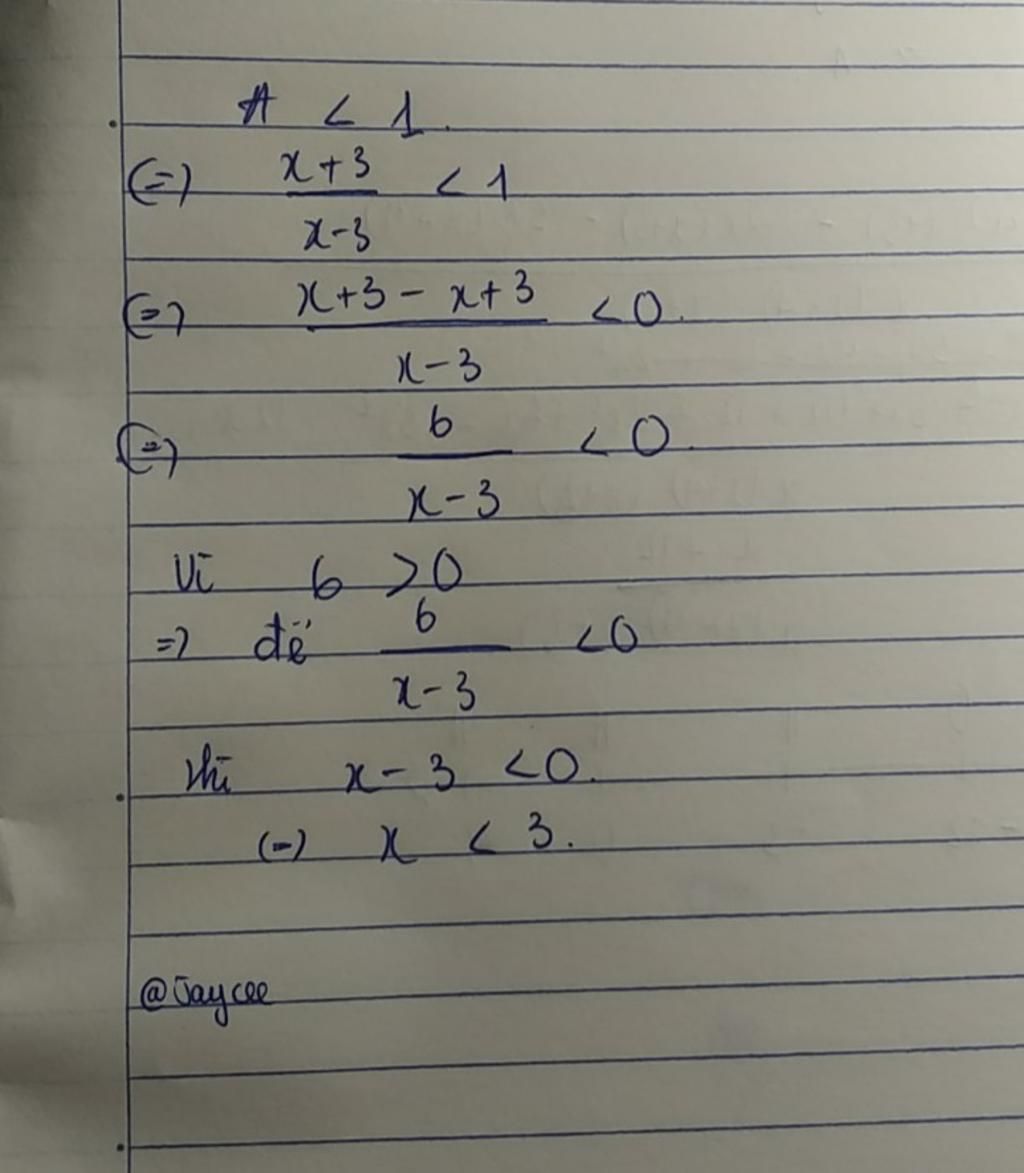 A < 1.
(=) x+3 / x-3 < 1
(=) x+3 - x+3 / x-3 < 0.
(=) 6 / x-3 < 0.
Vì 6 > 0
=> để 6 / x-3 < 0
thì x - 3 < 0.
(=) x < 3.
@Jaycee